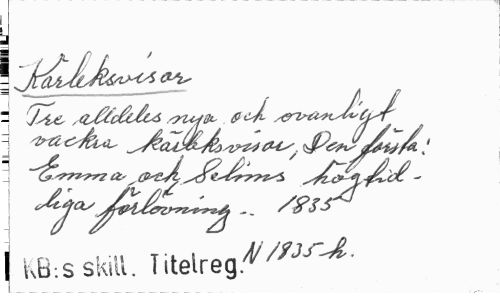 Kärleksvisor
Tre alldeles nya och ovanligt
vackra kärleksvisor, Den första:
Emma och Selims högtid-
liga förlovning.. 1835
KB:s skill. Titelreg. N 1835 h.